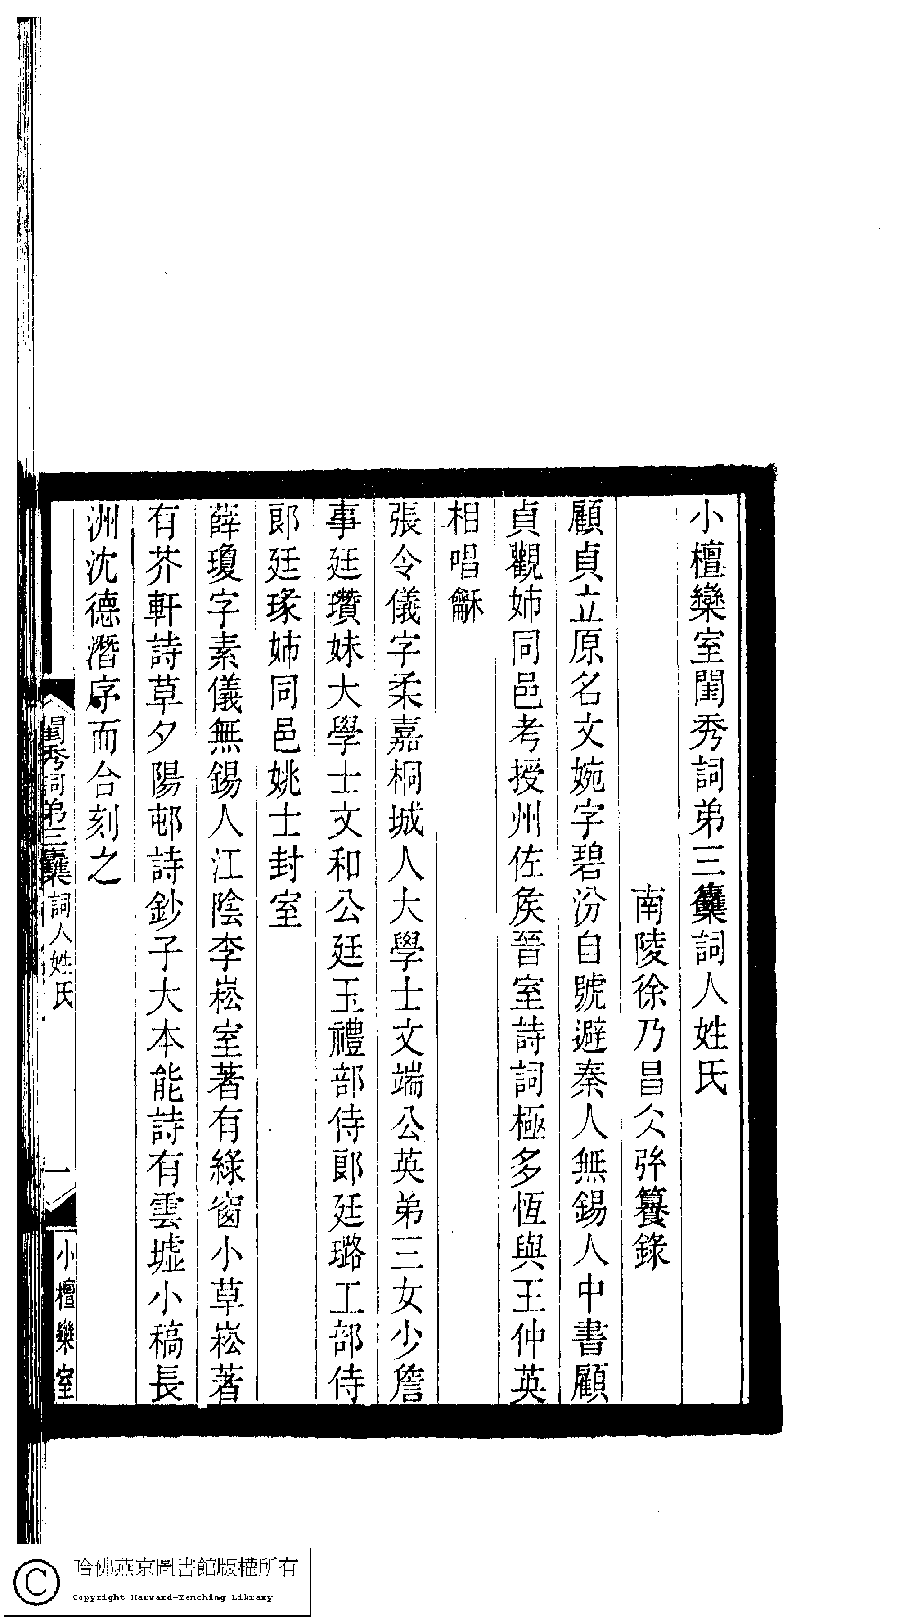 小檀欒室閨秀詞弟三集詞人姓氏
南陵徐乃昌仌弅籑錄
顧貞立原名文婉字碧汾自號避秦人無錫人中書顧
貞觀姊同邑考授州佐矦晉室詩詞極多恆與王仲英
相唱龢
張令儀字柔嘉桐城人大學士文端公英弟三女少詹
事廷瓚妹大學士文和公廷玉禮部侍郞廷璐工部侍
郞廷瑑姊同邑姚士封室
薛瓊字素儀無錫人江陰李崧室著有綠窗小草崧著
有芥軒詩草夕陽邨詩鈔子大本能詩有雲墟小稿長
洲沈德潛序而合刻之
閨秀詞弟三集詞人姓氏
一
小檀欒室
哈佛燕京圖書館版權所有
Copyright Harvard-Yenching Library